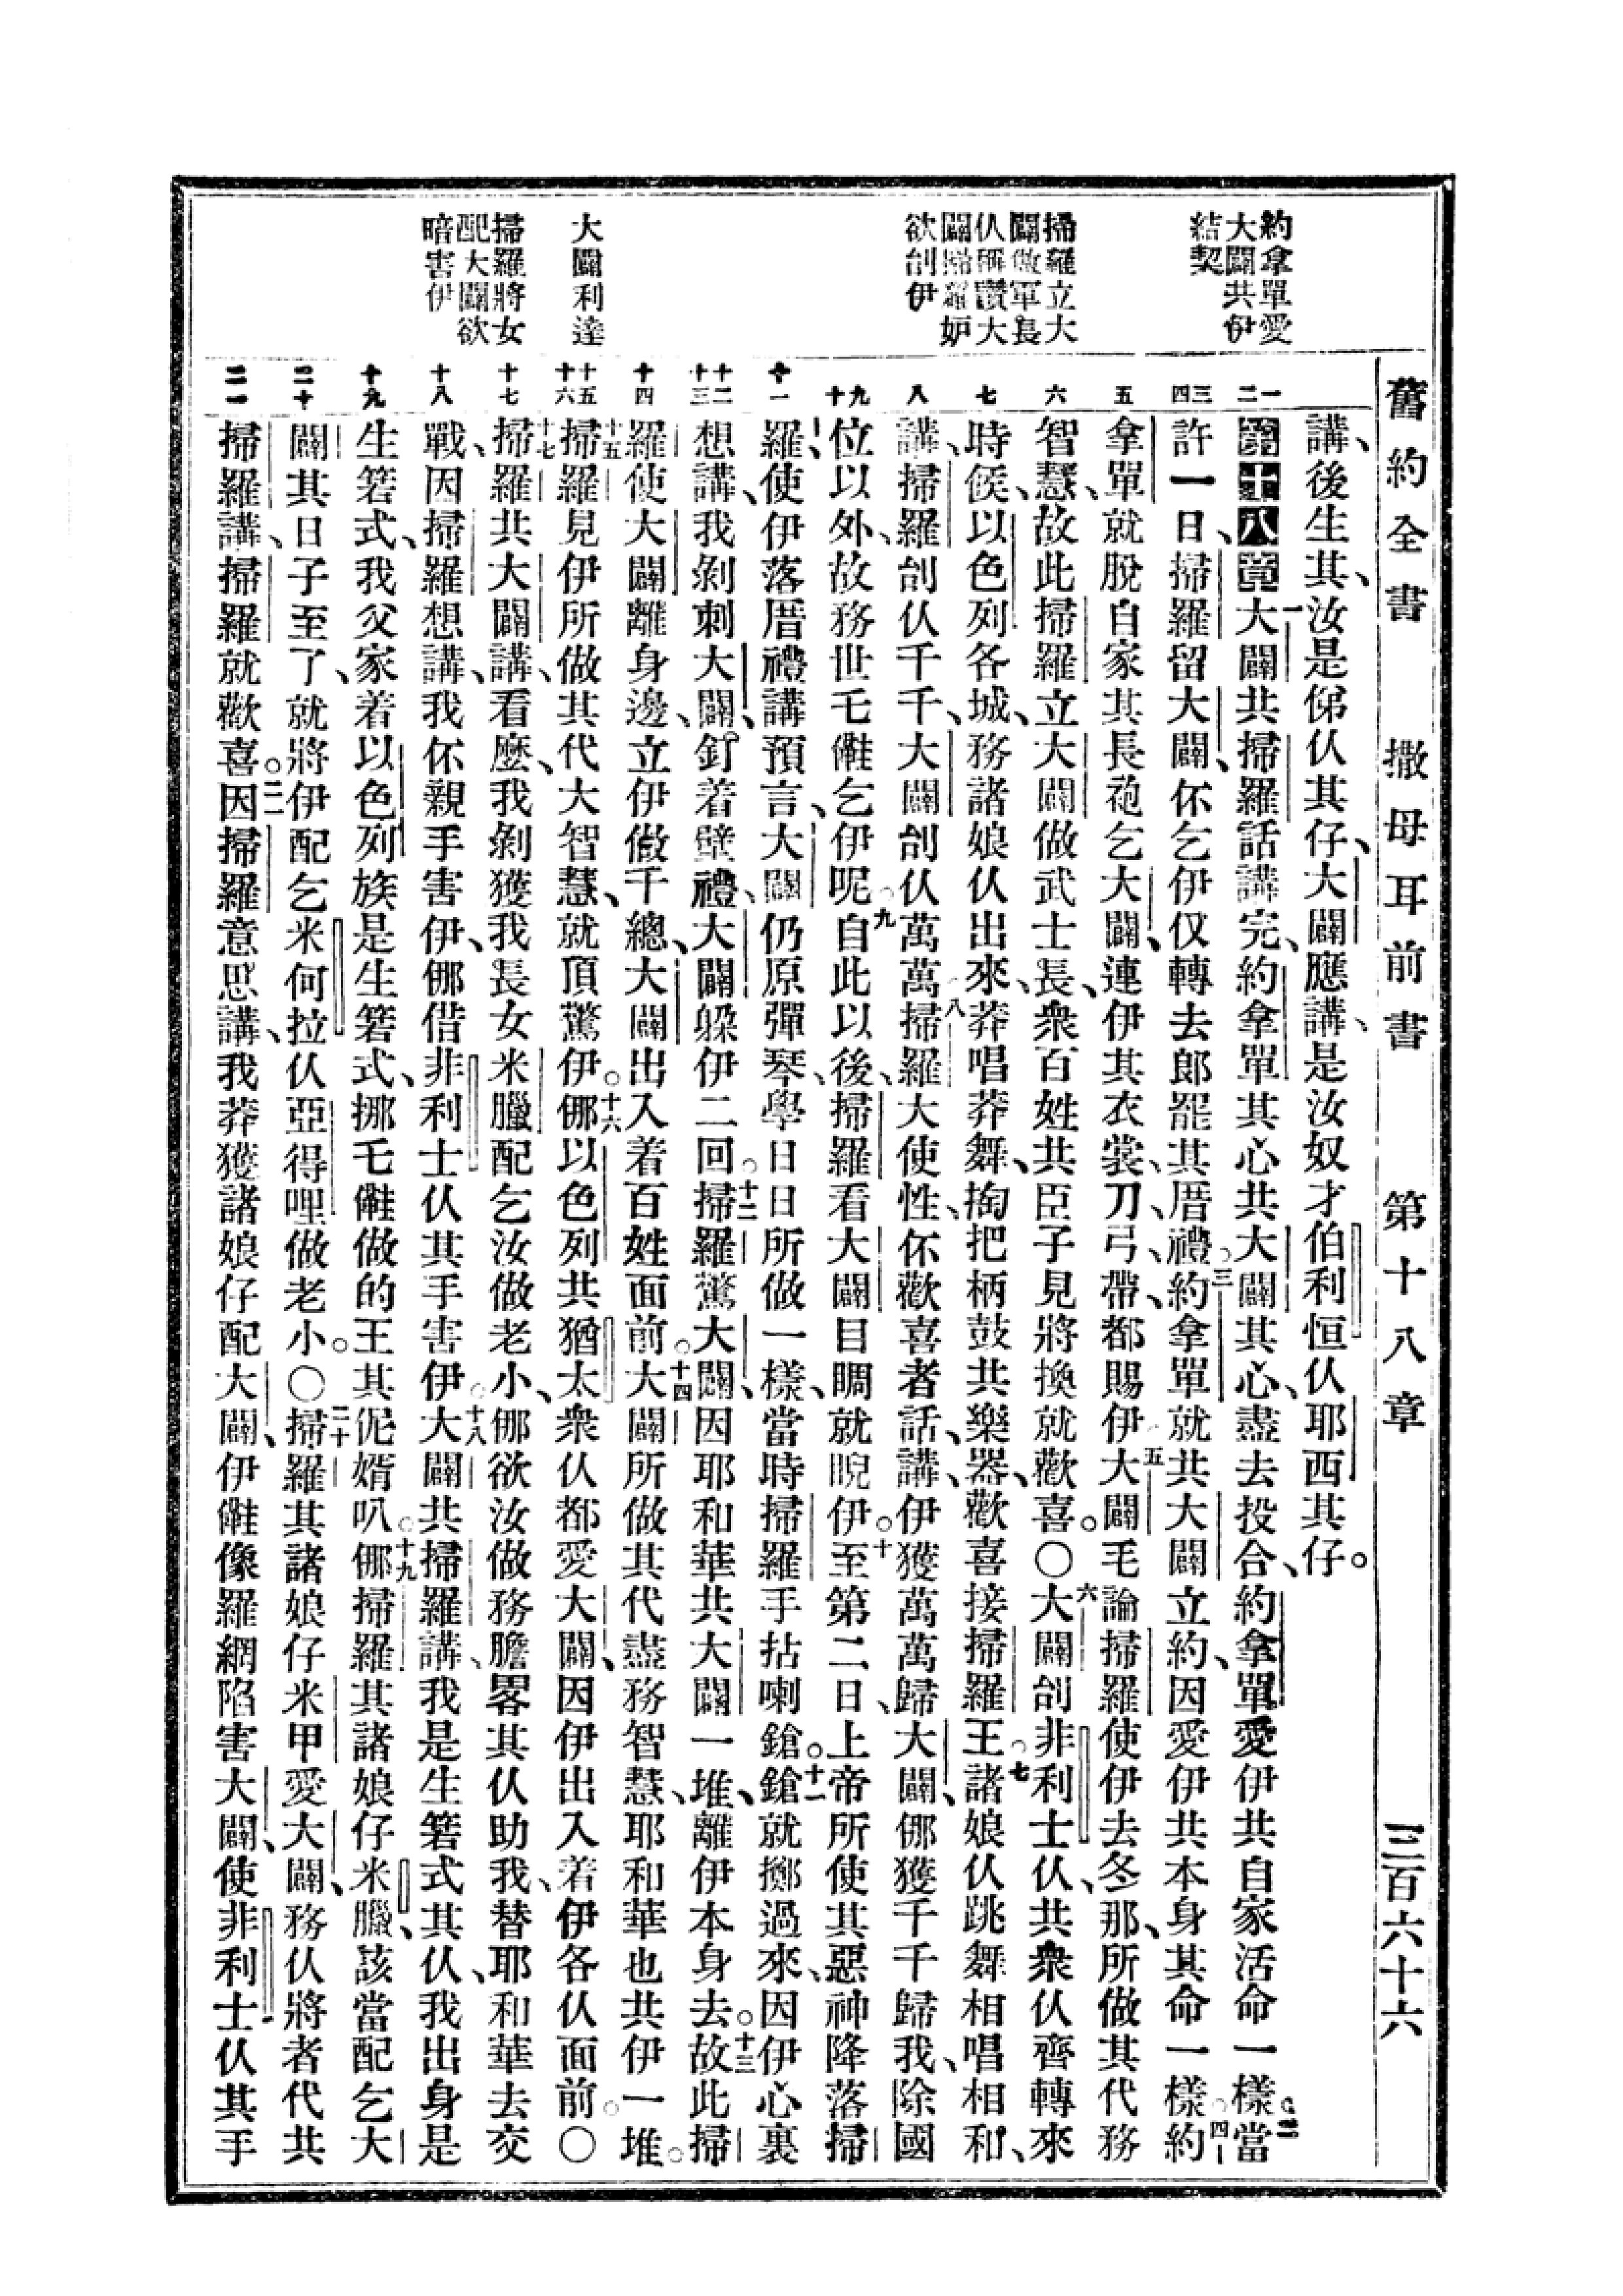 舊約全書 撒母耳前書 第十八章 三百六十六
約拿單愛
大闢共伊
結契
掃羅立大
闢做軍長
仈稱讚大
闢掃羅妒
欲刣伊
大闢利達
掃羅將女
配大闢欲
暗害伊
一 二
三 四
五
六
七
八
九 十
十一
十二 十三
十四
十五 十六
十七
十八
十九
二十
二一
講、後生其、汝是俤仈其仔、大闢應講、是汝奴才伯利恒仈耶西其仔。
第十八章 一大闢共掃羅話講完、約拿單其心共大闢其心、盡去投合、約拿單愛伊共自家活命一樣。二當
許一日、掃羅留大闢、伓乞伊仅轉去郎罷其厝禮。三約拿單就共大闢立約、因愛伊共本身其命一樣。四約
拿單就脫自家其長袍乞大闢、連伊其衣裳、刀、弓、帶、都賜伊。五大闢毛論掃羅使伊去冬那、所做其代務
智慧、故此掃羅立大闢做武士長、衆百姓共臣子見將換就歡喜。○六大闢刣非利士仈、共衆仈齊轉來
時候、以色列各城、務諸娘仈出來、莽唱莽舞、掏把柄鼓共樂器、歡喜接掃羅王。七諸娘仈跳舞相唱相和、
講、掃羅刣仈千千、大闢刣仈萬萬。八掃羅大使性、伓歡喜者話、講、伊獲萬萬歸大闢、倻獲千千歸我、除國
位以外、故務世乇儺乞伊呢。九自此以後、掃羅看大闢目睭就睨伊。十至第二日、上帝所使其惡神降落掃
羅、使伊落厝禮講預言、大闢仍原彈琴、學日日所做一樣、當時掃羅手拈喇鎗。十一鎗就擲過來、因伊心裏
想講、我剝刺大闢、釘着壁禮、大闢躲伊二回。十二掃羅驚大闢、因耶和華共大闢一堆、離伊本身去。十三故此掃
羅使大闢離身邊、立伊做千總、大闢出入着百姓面前。十四大闢所做其代盡務智慧、耶和華也共伊一堆。
十五掃羅見伊所做其代大智慧、就頂驚伊。十六倻以色列共猶太衆仈都愛大闢、因伊出入着伊各仈面前。○
十七掃羅共大闢講、看麽、我剝獲我長女米臘配乞汝做老小、倻欲汝做務膽畧其仈助我、替耶和華去交
戰、因掃羅想講、我伓親手害伊、倻偕非利士仈其手害伊。十八大闢共掃羅講、我是生箬式其仈、我出身是
生箬式、我父家着以色列族是生箬式、挪乇儺做的王其伲婿叭。十九倻掃羅其諸娘仔米臘、該當配乞大
闢其日子至了、就將伊配乞米何拉仈亞得哩做老小。○二十掃羅其諸娘仔米甲愛大闢、務仈將者代共
掃羅講、掃羅就歡喜。二一因掃羅意思講、我莽獲諸娘仔配大闢、伊儺像羅網陷害大闢、使非利士仈其手